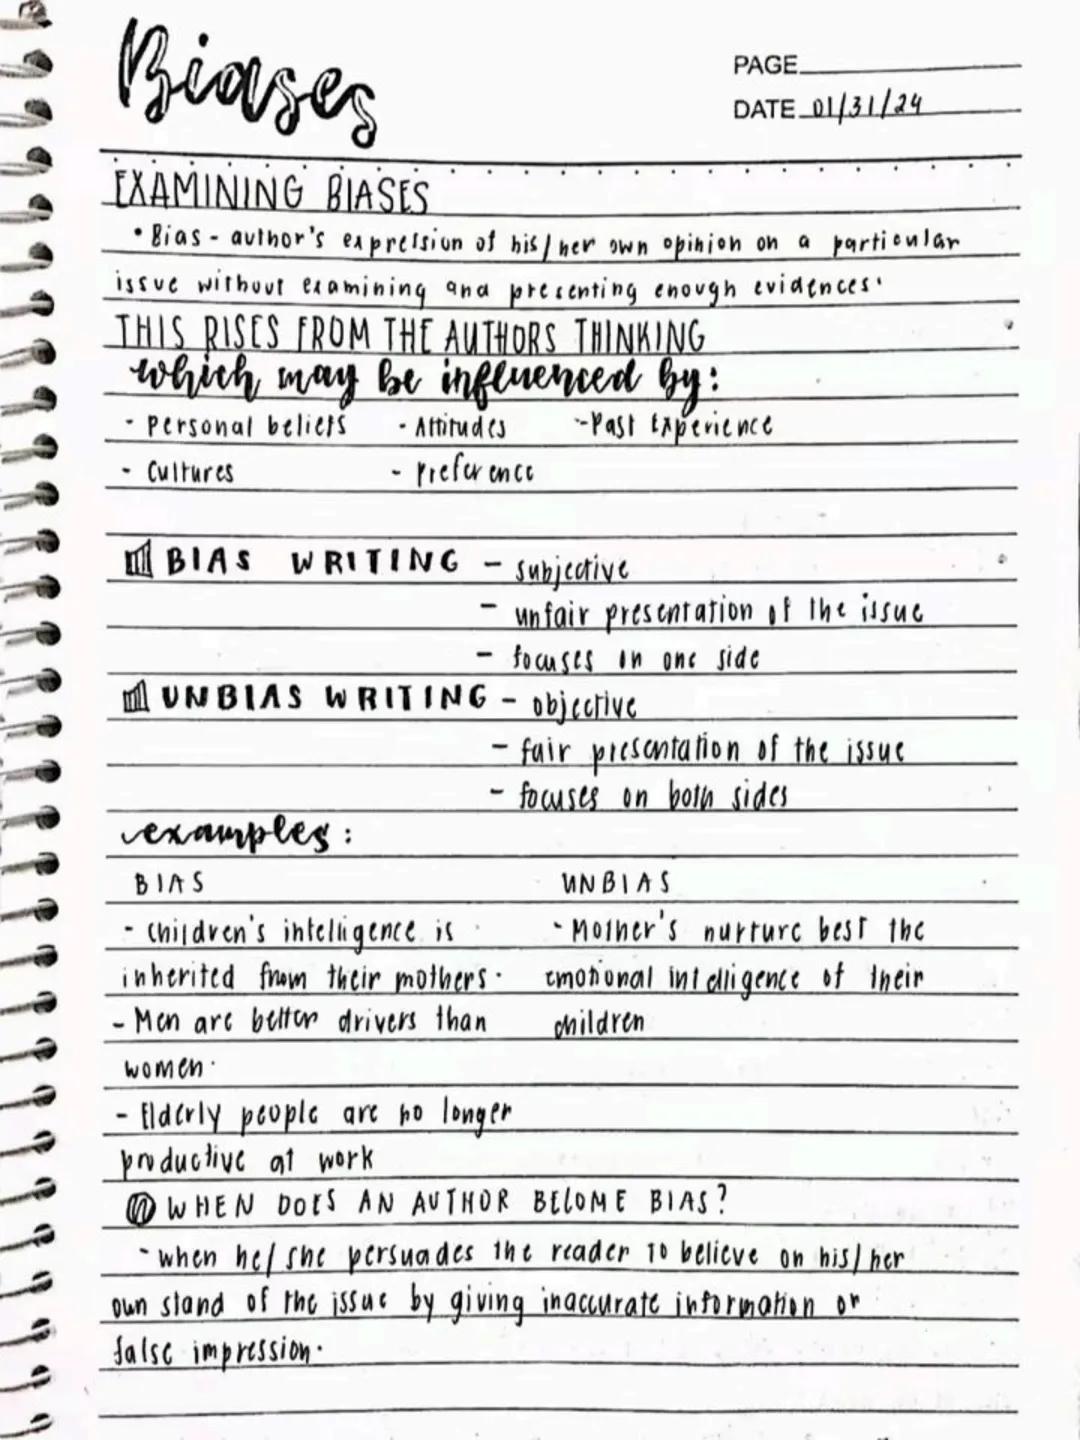 Biases
PAGE
DATE 01/31/24
EXAMINING BIASES
• Bias - author's expression of his/her own opinion on a particular
issue without examining and presenting enough evidences.
THIS RISES FROM THE AUTHORS THINKING
which may be influenced by:
- Personal beliefs - Attitudes - Past Experience
- Cultures - Preference
BIAS WRITING - subjective
- unfair presentation of the issue
- focuses in one side
UNBIAS WRITING - objective
- fair presentation of the issue
- focuses on both sides
examples:
BIAS UNBIAS
- Children's intelligence is - Mother's nurture best the
inherited from their mothers. emotional intelligence of their
- Men are better drivers than children
women.
- Elderly people are no longer
productive at work
WHEN DOES AN AUTHOR BECOME BIAS?
- when he/she persuades the reader to believe on his/her
own stand of the issue by giving inaccurate information or
false impression.